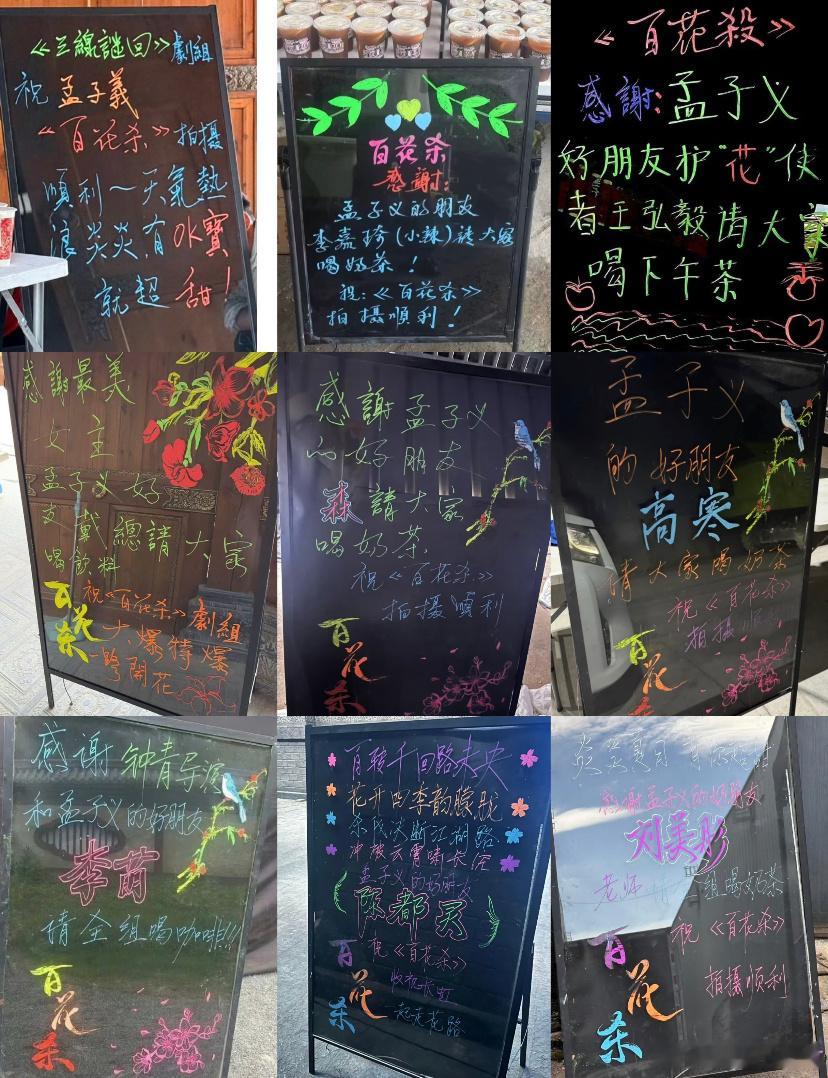 《三線謎回》劇組
祝 孟子義
《百花杀》拍攝
順利～天氣熱
浪尖炎有冰寶
就超甜！
百花杀
感謝：
孟子义的朋友
李嘉琦(小辣)請大家
喝奶茶！
祝：《百花杀》
拍攝順利！
《百花殺》
感謝:孟子义
好朋友护"花"使
者王弘毅請大家
喝下午茶
感謝最美
女主
孟子义好
友戴總請大家
喝飲料
祝《百花杀》劇組
大爆特爆
一路開花
百花杀
感謝孟子义
的好朋友
森請大家
喝奶茶
祝《百花杀》
拍攝順利
百花杀
孟子义
的好朋友
高寒
請大家喝奶茶
祝《百花杀》
拍攝
百花杀
感谢 钟青导演
和孟子义的好朋友
李茵
請全组喝咖啡!!
百花杀
百转千回路未央
花开吟李韵朦胧
杀伐决断江湖路
冲破云霄情长

孟子义的好朋友
陈都灵
祝《百花杀》
收视长虹
一起走花路
百花杀
炎炎夏日
感謝孟子义的好朋友
刘美彤
老师 組喝奶茶
祝《百花杀》
拍摄顺利
百花杀